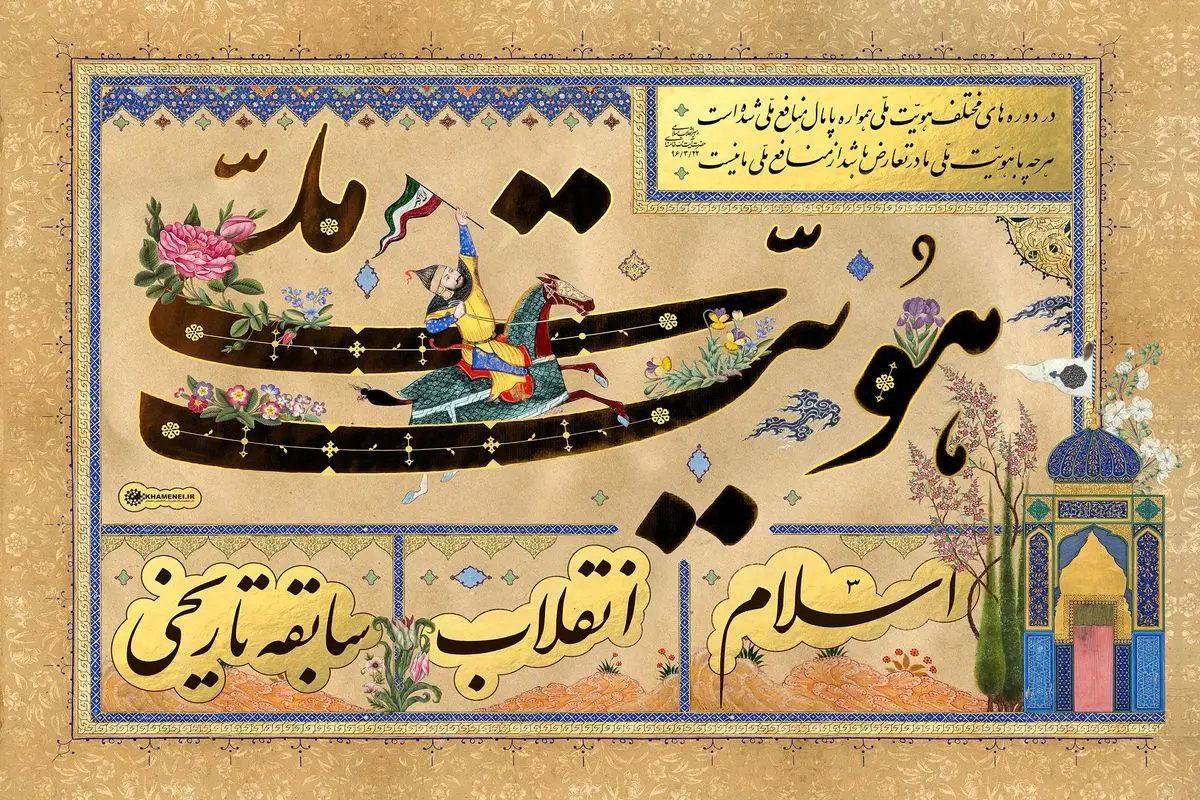 در دوره های مختلف هویّت ملّی همواره پامال منافع ملّی شده است
هرچه با هویّت ملّی ما در تعارض باشد از منافع ملّی ما نیست
۹۶/۳/۲۲
هُویّت ملّی
KHAMENEI.IR
اسلام
انقلاب
سابقه تاریخی